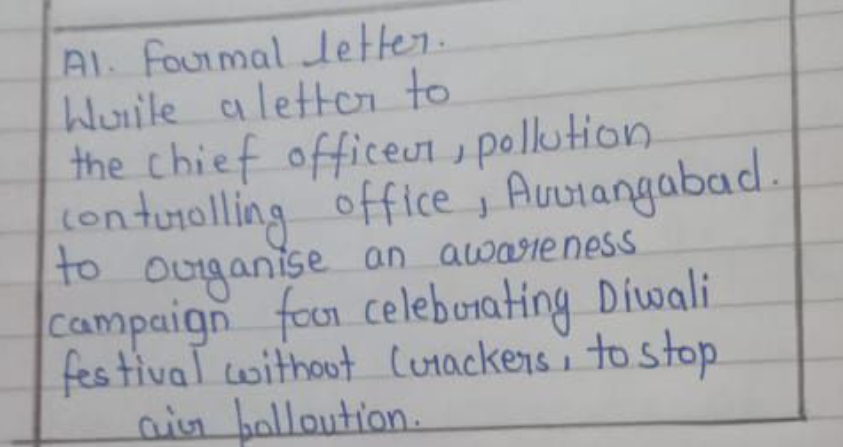 A1. Formal letter.
Write a letter to
the chief officer, pollution
controlling office, Aurangabad.
to organise an awareness
campaign for celebrating Diwali
festival without Crackers, to stop
air balloution.